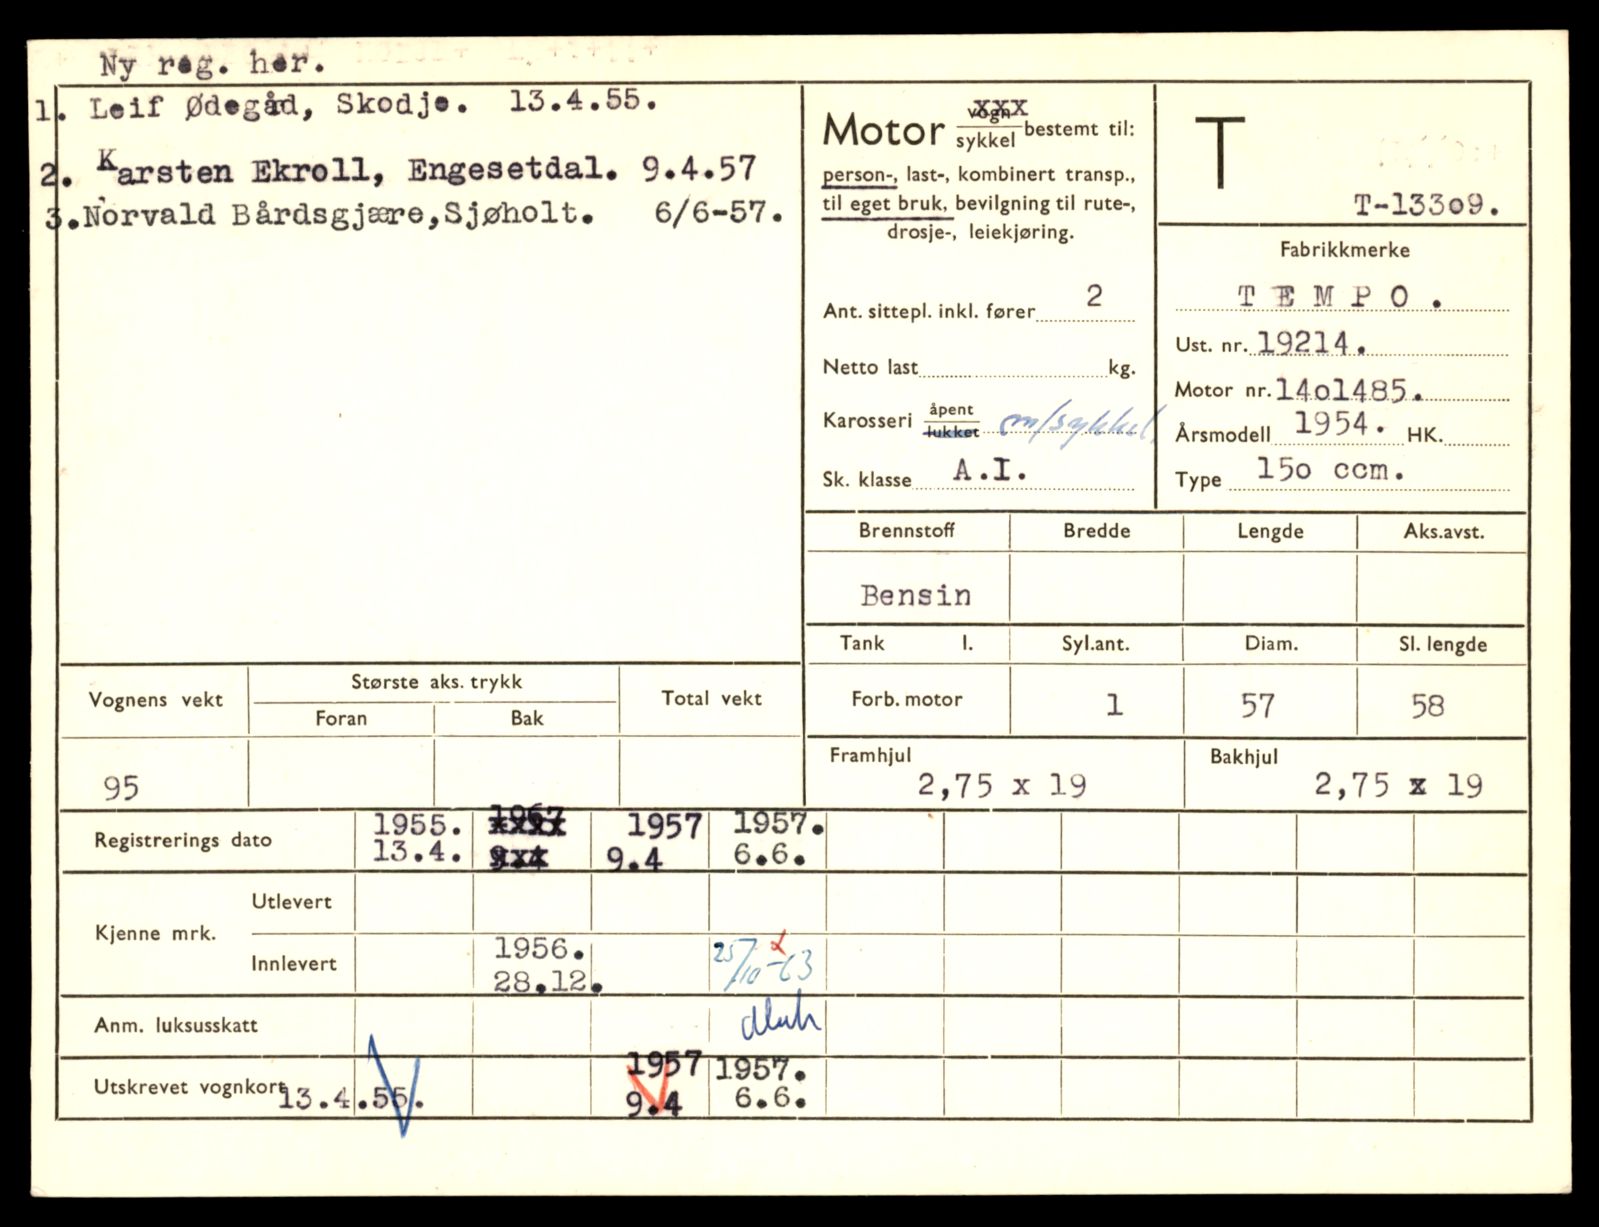 Ny reg. her.
1. Leif Ødegård, Skodje. 13.4.55.
2. Karsten Ekroll, Engesetdal. 9.4.57
3. Norvald Bårdsgjære, Sjøholt. 6/6-57.
Motor vogn xxx
sykkel bestemt til:
person-, last-, kombinert transp.,
til eget bruk, bevilgning til rute-,
drosje-, leiekjøring.
Ant. sittepl. inkl. fører 2
Netto last kg.
Karosseri åpent
lukket m/sykkel.
Sk. klasse A.I.
T
T-133o9.
Fabrikkmerke
T E M P O .
Ust. nr. 19214.
Motor nr. 14o1485.
Årsmodell 1954. HK.
Type 15o ccm.
Brennstoff Bredde Lengde Aks.avst.
Bensin
Tank l. Syl.ant. Diam. Sl. lengde
Forb. motor 1 57 58
Framhjul Bakhjul
2,75 x 19 2,75 x 19
Vognens vekt Største aks. trykk Total vekt
Foran Bak
95
Registrerings dato 1955. 1957 1957.
13.4. 9.4 9.4 6.6.
Kjenne mrk. Utlevert
Innlevert 1956. 25/10-63
28.12.
Anm. luksusskatt
Utskrevet vognkort 13.4.55. 1957 1957.
9.4 6.6.